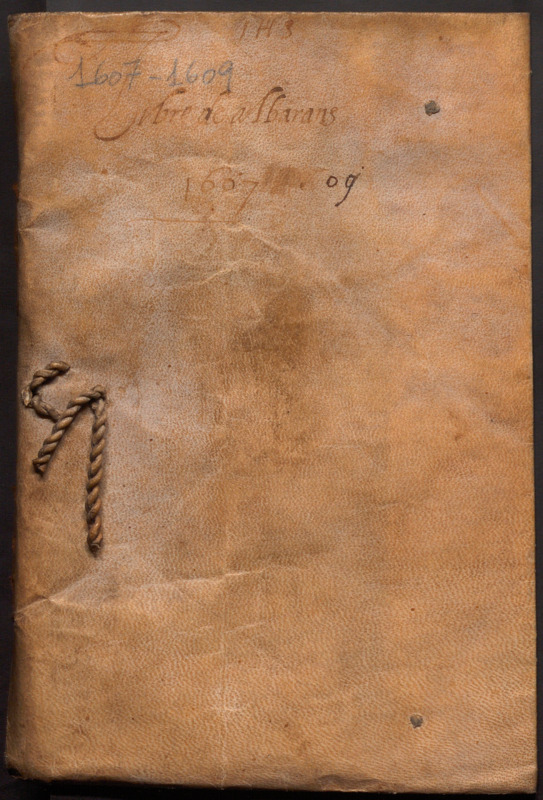 IHS
1607-1609
Libre de albarans
1607 09